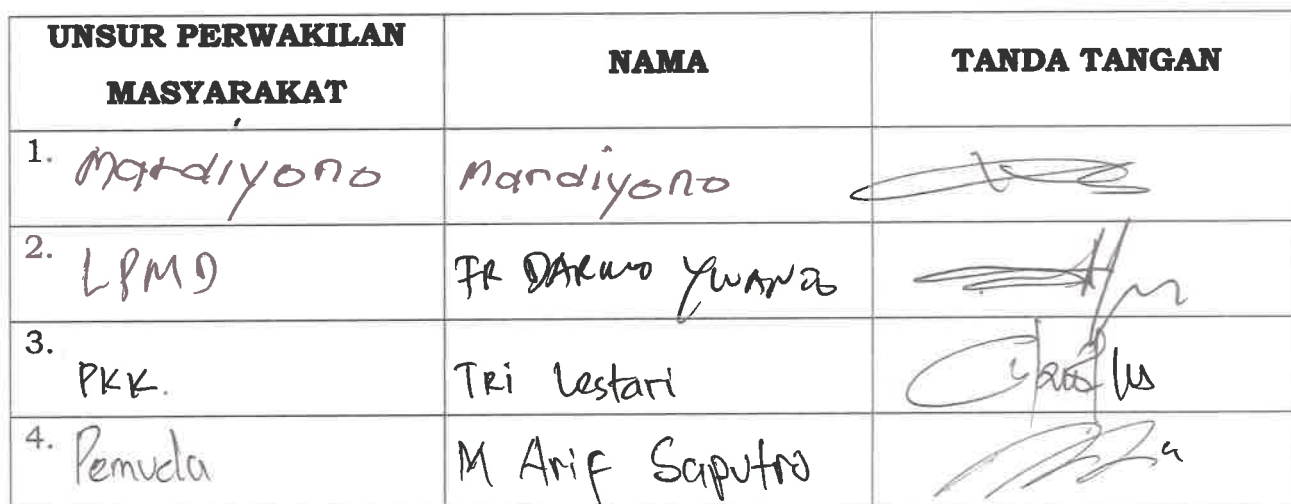 UNSUR PERWAKILAN
MASYARAKAT
NAMA
TANDA TANGAN
1. Mardiyono
Mardiyono
2. LPMD
FR DARMO
3. PKK.
TRi Lestari
4. Pemuda
M Arif Saputro